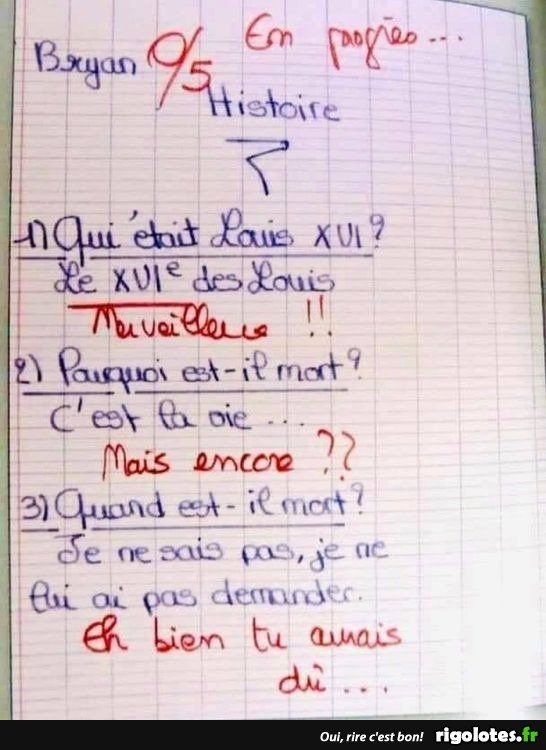 Bryan 0/5 En progrès...
Histoire
1) Qui était Louis XVI ?
Le XVIe des Louis
Merveilleux !!
2) Pourquoi est-il mort ?
C'est la vie ...
Mais encore ??
3) Quand est-il mort ?
Je ne sais pas, je ne
lui ai pas demander.
Eh bien tu aurais
dû ...
Oui, rire c'est bon! rigolotes.fr